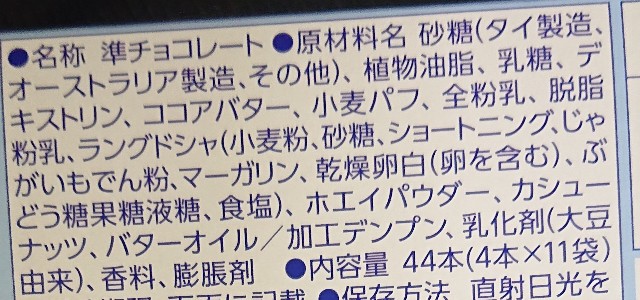 ●名称 準チョコレート ●原材料名 砂糖(タイ製造、
オーストラリア製造、その他)、植物油脂、乳糖、デ
キストリン、ココアバター、小麦パフ、全粉乳、脱脂
粉乳、ラングドシャ(小麦粉、砂糖、ショートニング、じゃ
がいもでん粉、マーガリン、乾燥卵白(卵を含む)、ぶ
どう糖果糖液糖、食塩)、ホエイパウダー、カシュー
ナッツ、バターオイル／加工デンプン、乳化剤(大豆
由来)、香料、膨脹剤 ●内容量 44本(4本×11袋)
に記載 ●保存方法 直射日光を